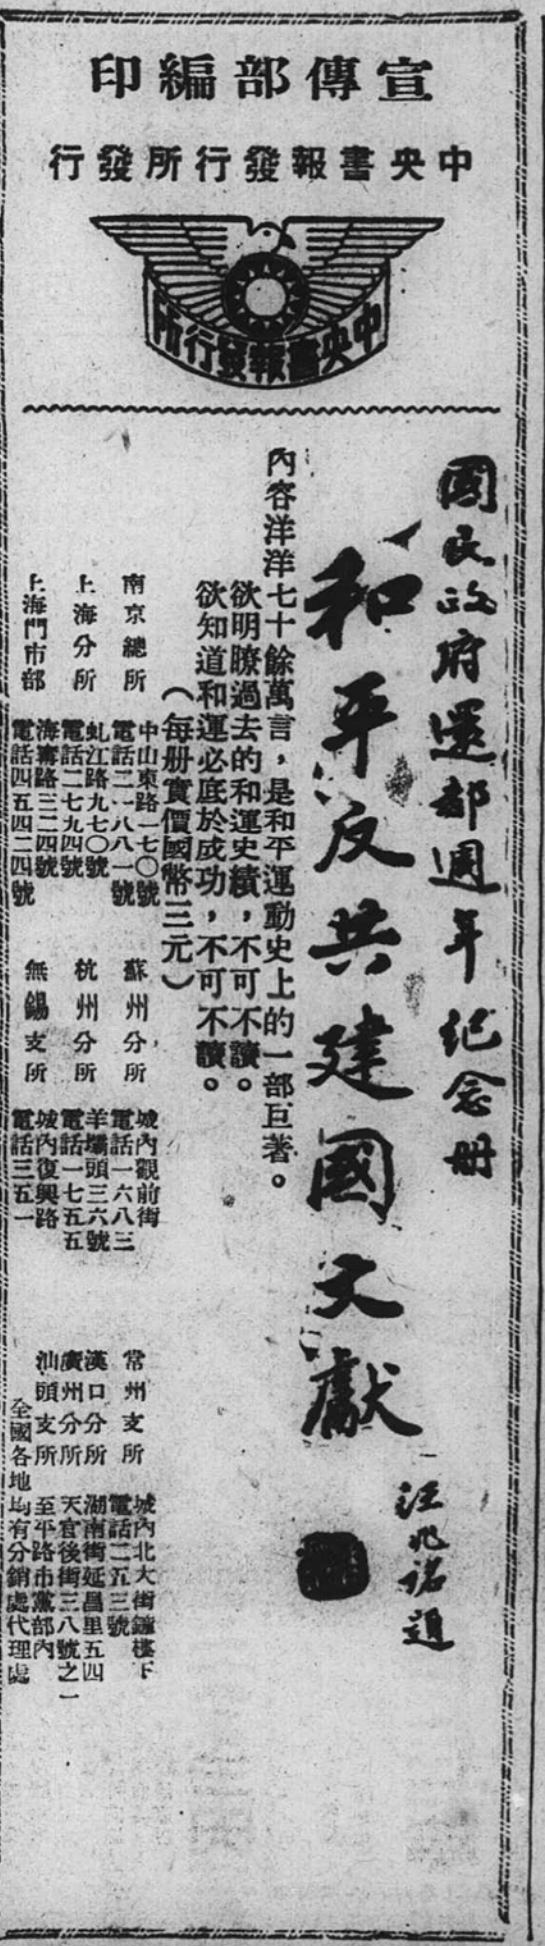 宣傳部編印
中央書報發行所發行
中央書報發行所
國民政府還都週年紀念册
和平反共建國文獻
汪兆銘題
內容洋洋七十餘萬言，是和平運動史上的一部巨著。
欲明瞭過去的和運史績，不可不讀。
欲知道和運必底於成功，不可不讀。
（每册實價國幣三元）
南京總所
中山東路一七〇號
電話二一八八一號
上海分所
虬江路九七〇號
電話二七九四號
上海門市部
海甯路三二四號
電話四五四二四號
蘇州分所
城內觀前街
電話一六八三
杭州分所
羊壩頭三六號
電話一七五五
無錫支所
城內復興路
電話三五一
常州支所
城內北大街鐘樓下
電話二五三號
漢口分所
湖南街延昌里五四
廣州分所
天官後街三八號之一
汕頭支所
至平路市黨部內
全國各地均有分銷處代理處